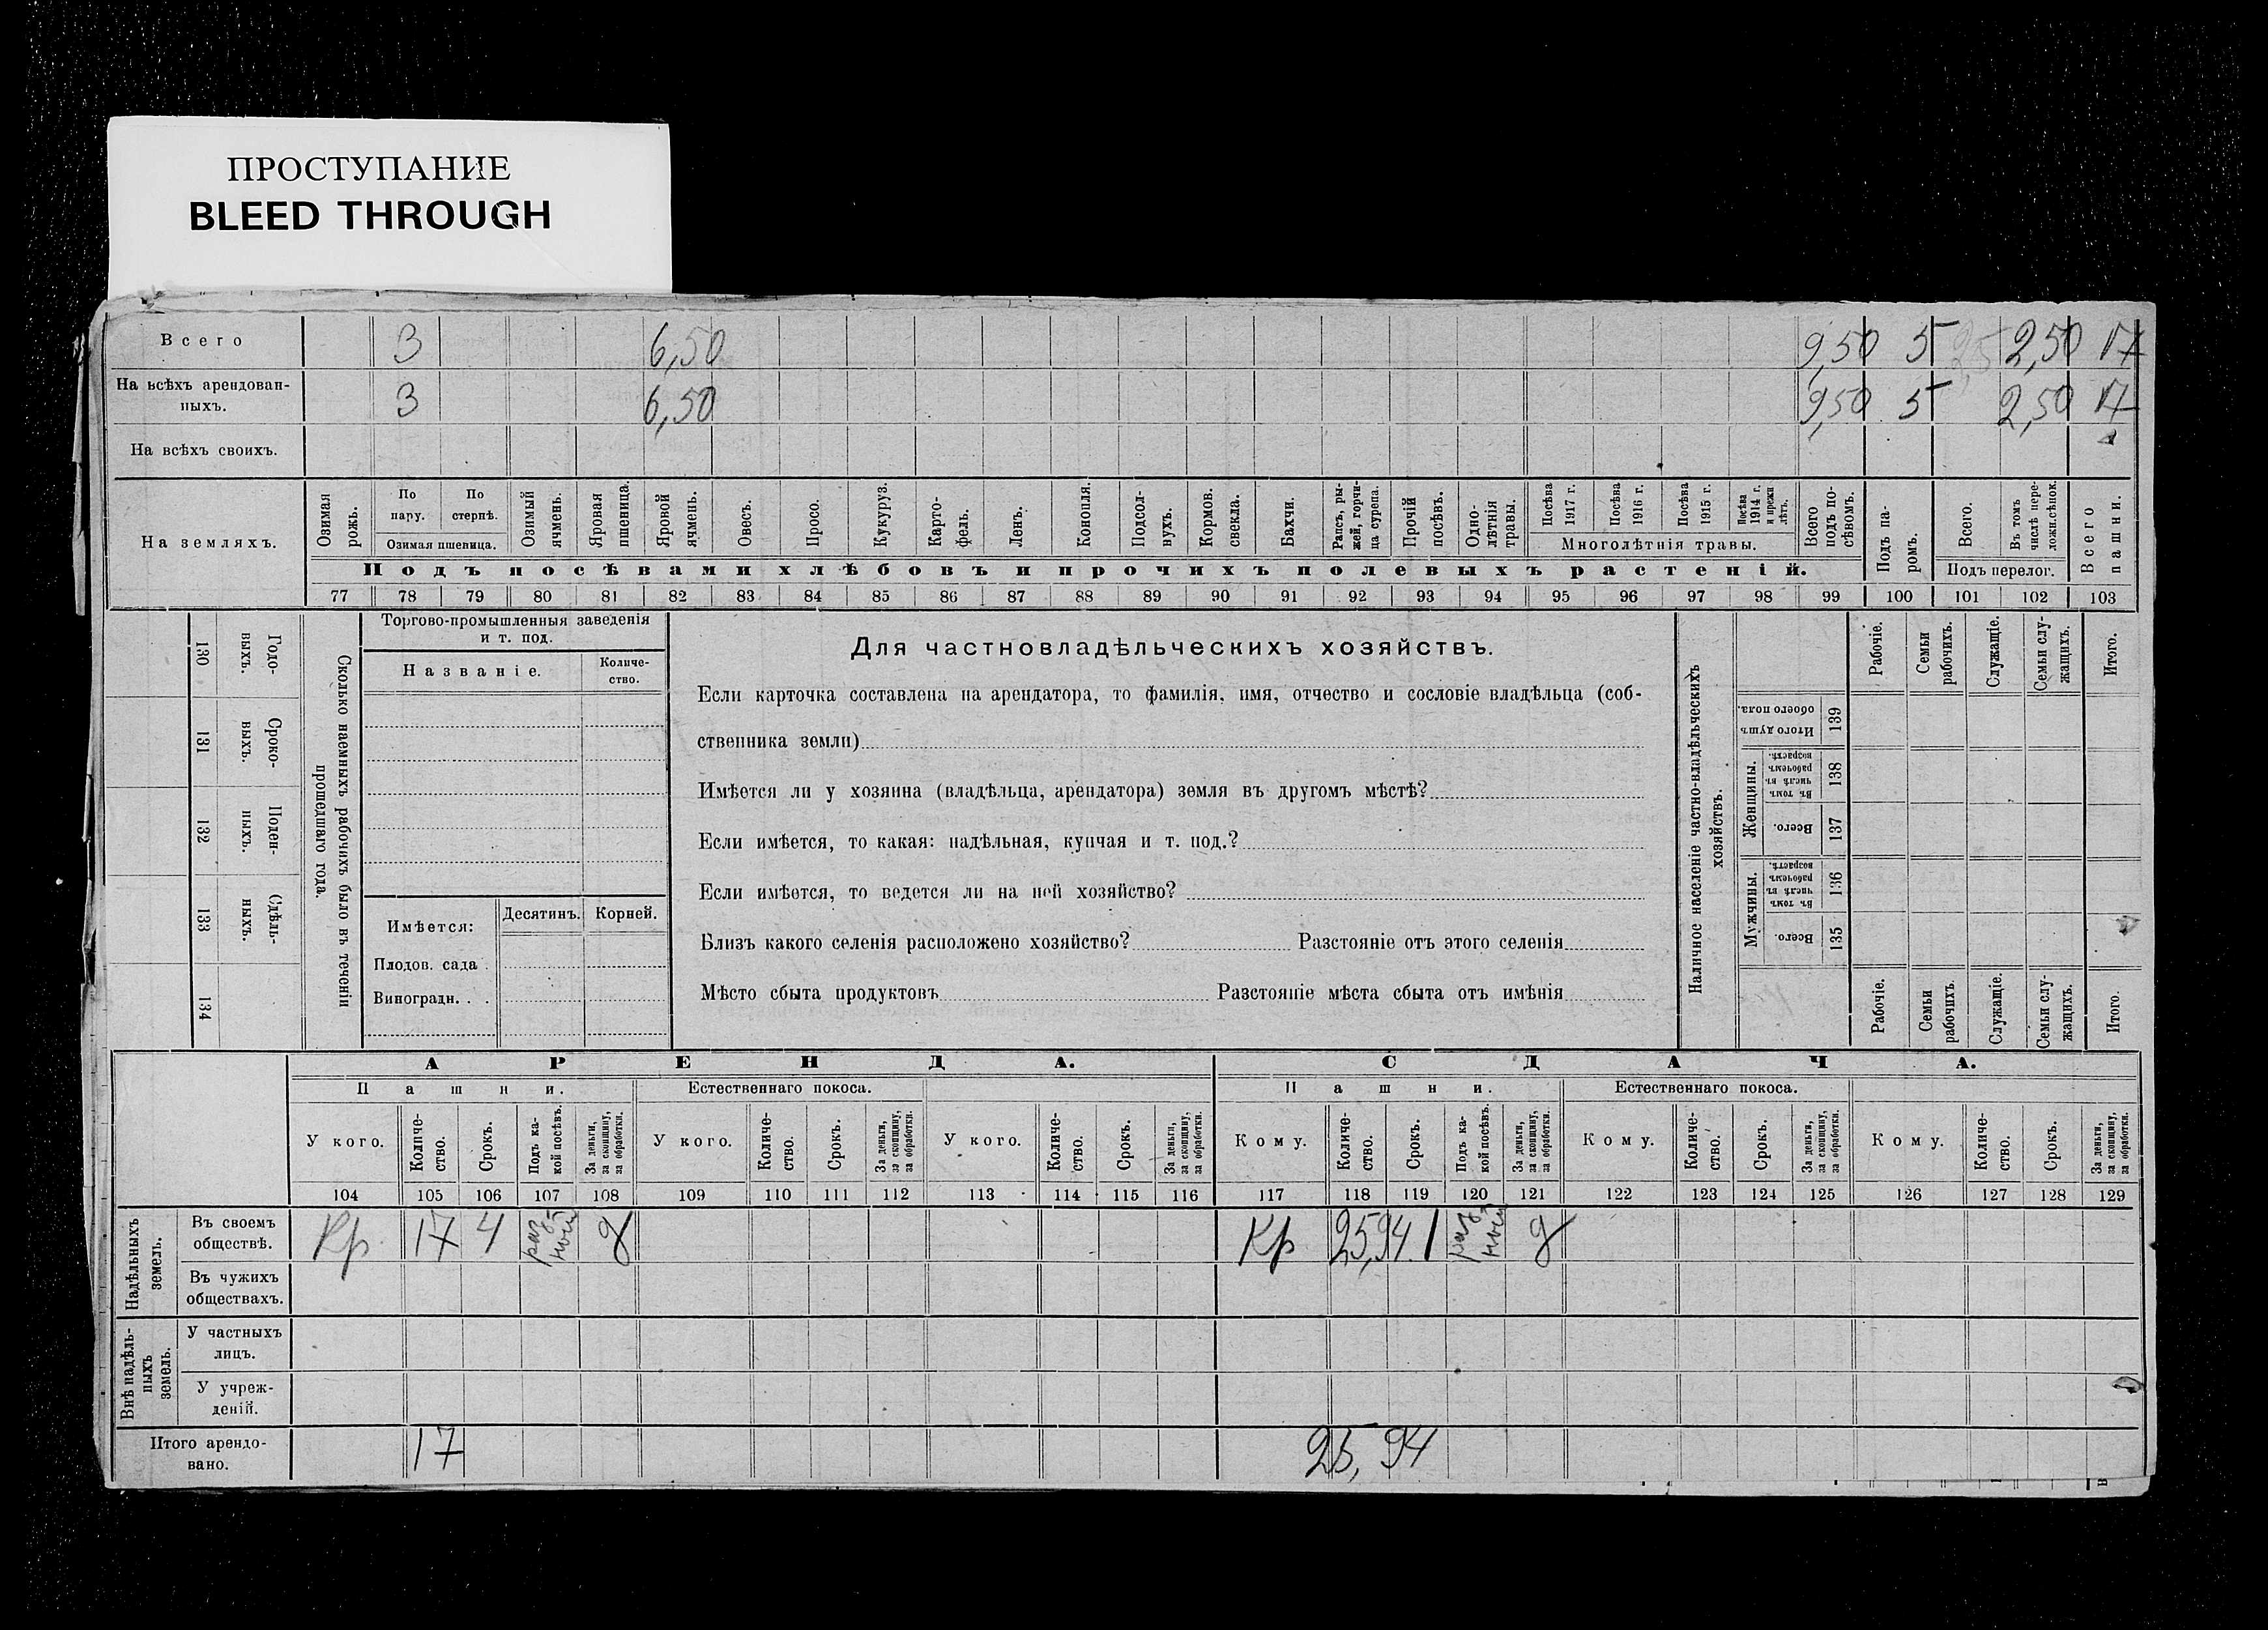 ПРОСТУПАНИЕ
BLEED THROUGH
Всего 3 6,50 9,50 5 2,50 17
На всѣхъ арендован-
ныхъ. 3 6,50 9,50 5 2,50 17
На всѣхъ своихъ.
На земляхъ.
Озимая рожь.
По пару.
По стернѣ.
Озимая пшеница.
Озимый ячмень.
Яровая пшеница.
Яровой ячмень.
Овесъ.
Просо.
Кукуруз.
Карто-
фель.
Ленъ.
Конопля.
Подсол-
нухъ.
Кормов. свекла.
Бахчи.
Рапсъ, ры-
жей, горчи-
ца сурепа.
Прочій посѣвъ.
Одно-
лѣтнія
травы.
Посѣва 1917 г.
Посѣва 1916 г.
Посѣва 1915 г.
Посѣва 1914 г. и прежн лѣтъ.
Многолѣтнія травы.
Всего подъ по-
сѣвомъ.
Подъ па-
ромъ.
Всего.
Въ томъ числѣ пере-
ложн.сѣнок.
Подъ перелог.
Всего пашни.
Подъ посѣвами хлѣбовъ и прочихъ полевыхъ растеній.
77 78 79 80 81 82 83 84 85 86 87 88 89 90 91 92 93 94 95 96 97 98 99 100 101 102 103
130 Годо-
выхъ.
131 Сроко-
выхъ.
132 Поден-
ныхъ.
133 Сдѣль-
ныхъ.
134
Сколько наемныхъ рабочихъ было въ теченіи
прошедшаго года.
Торгово-промышленныя заведенія
и т. под.
Названіе.
Количе-
ство.
Имѣется:
Десятинъ.
Корней.
Плодов. сада .
Виноградн. . .
Для частновладѣльческихъ хозяйствъ.
Если карточка составлена на арендатора, то фамилія, имя, отчество и сословіе владѣльца (соб-
ственника земли)
Имѣется ли у хозяина (владѣльца, арендатора) земля въ другомъ мѣстѣ?
Если имѣется, то какая: надѣльная, купчая и т. под.?
Если имѣется, то ведется ли на ней хозяйство?
Близъ какого селенія расположено хозяйство? Разстояніе отъ этого селенія
Мѣсто сбыта продуктовъ Разстояніе мѣста сбыта отъ имѣнія
Наличное населеніе частно-владѣльческихъ
хозяйствъ.
Итого душъ обоего пола. 139
Женщины.
Въ томъ числѣ въ рабочемъ возрастѣ. 138
Всего. 137
Мужчины.
Въ томъ числѣ въ рабочемъ возрастѣ. 136
Всего. 135
Рабочіе.
Семьи рабочихъ.
Служащіе.
Семьи слу-
жащихъ.
Итого.
Рабочіе.
Семьи рабочихъ.
Служащіе.
Семьи слу-
жащихъ.
Итого.
АРЕНДА. СДАЧА.
Пашни. Естественнаго покоса. Пашни. Естественнаго покоса.
У кого. Количе-
ство. Срокъ. Подъ ка-
кой посѣвъ. За деньги,
за скопщину,
за обработки.
У кого. Количе-
ство. Срокъ. За деньги,
за скопщину,
за обработки.
У кого. Количе-
ство. Срокъ. За деньги,
за скопщину,
за обработки.
Кому. Количе-
ство. Срокъ. Подъ ка-
кой посѣвъ. За деньги,
за скопщину,
за обработки.
Кому. Количе-
ство. Срокъ. За деньги,
за скопщину,
за обработки.
Кому. Количе-
ство. Срокъ. За деньги,
за скопщину,
за обработки.
104 105 106 107 108 109 110 111 112 113 114 115 116 117 118 119 120 121 122 123 124 125 126 127 128 129
Надѣльныхъ
земель.
Въ своемъ
обществѣ. Кр. 17 4 раз-
ной д Кр 25,94 1 раз-
ной д
Въ чужихъ
обществахъ.
Внѣ надѣль-
ныхъ
земель.
У частныхъ
лицъ.
У учреж-
деній.
Итого арендо-
вано. 17 25,94